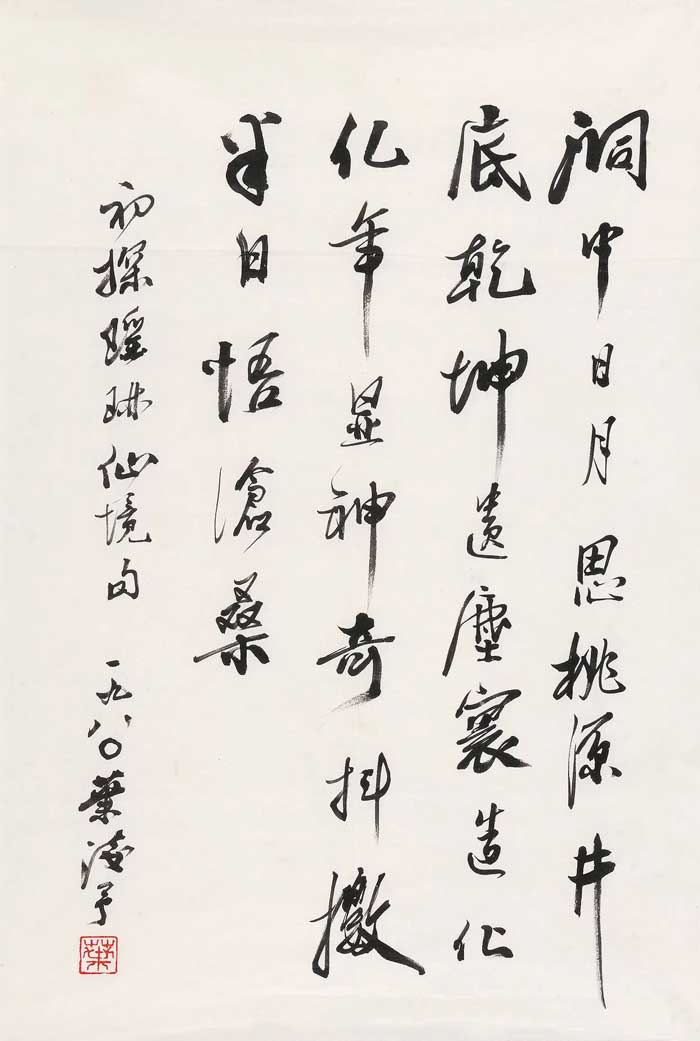 洞中日月思桃源井
底乾坤遗塵寰造化
亿年显神奇抖擞
半日悟滄桑
初探瑶琳仙境句 一九八〇葉浅予
葉